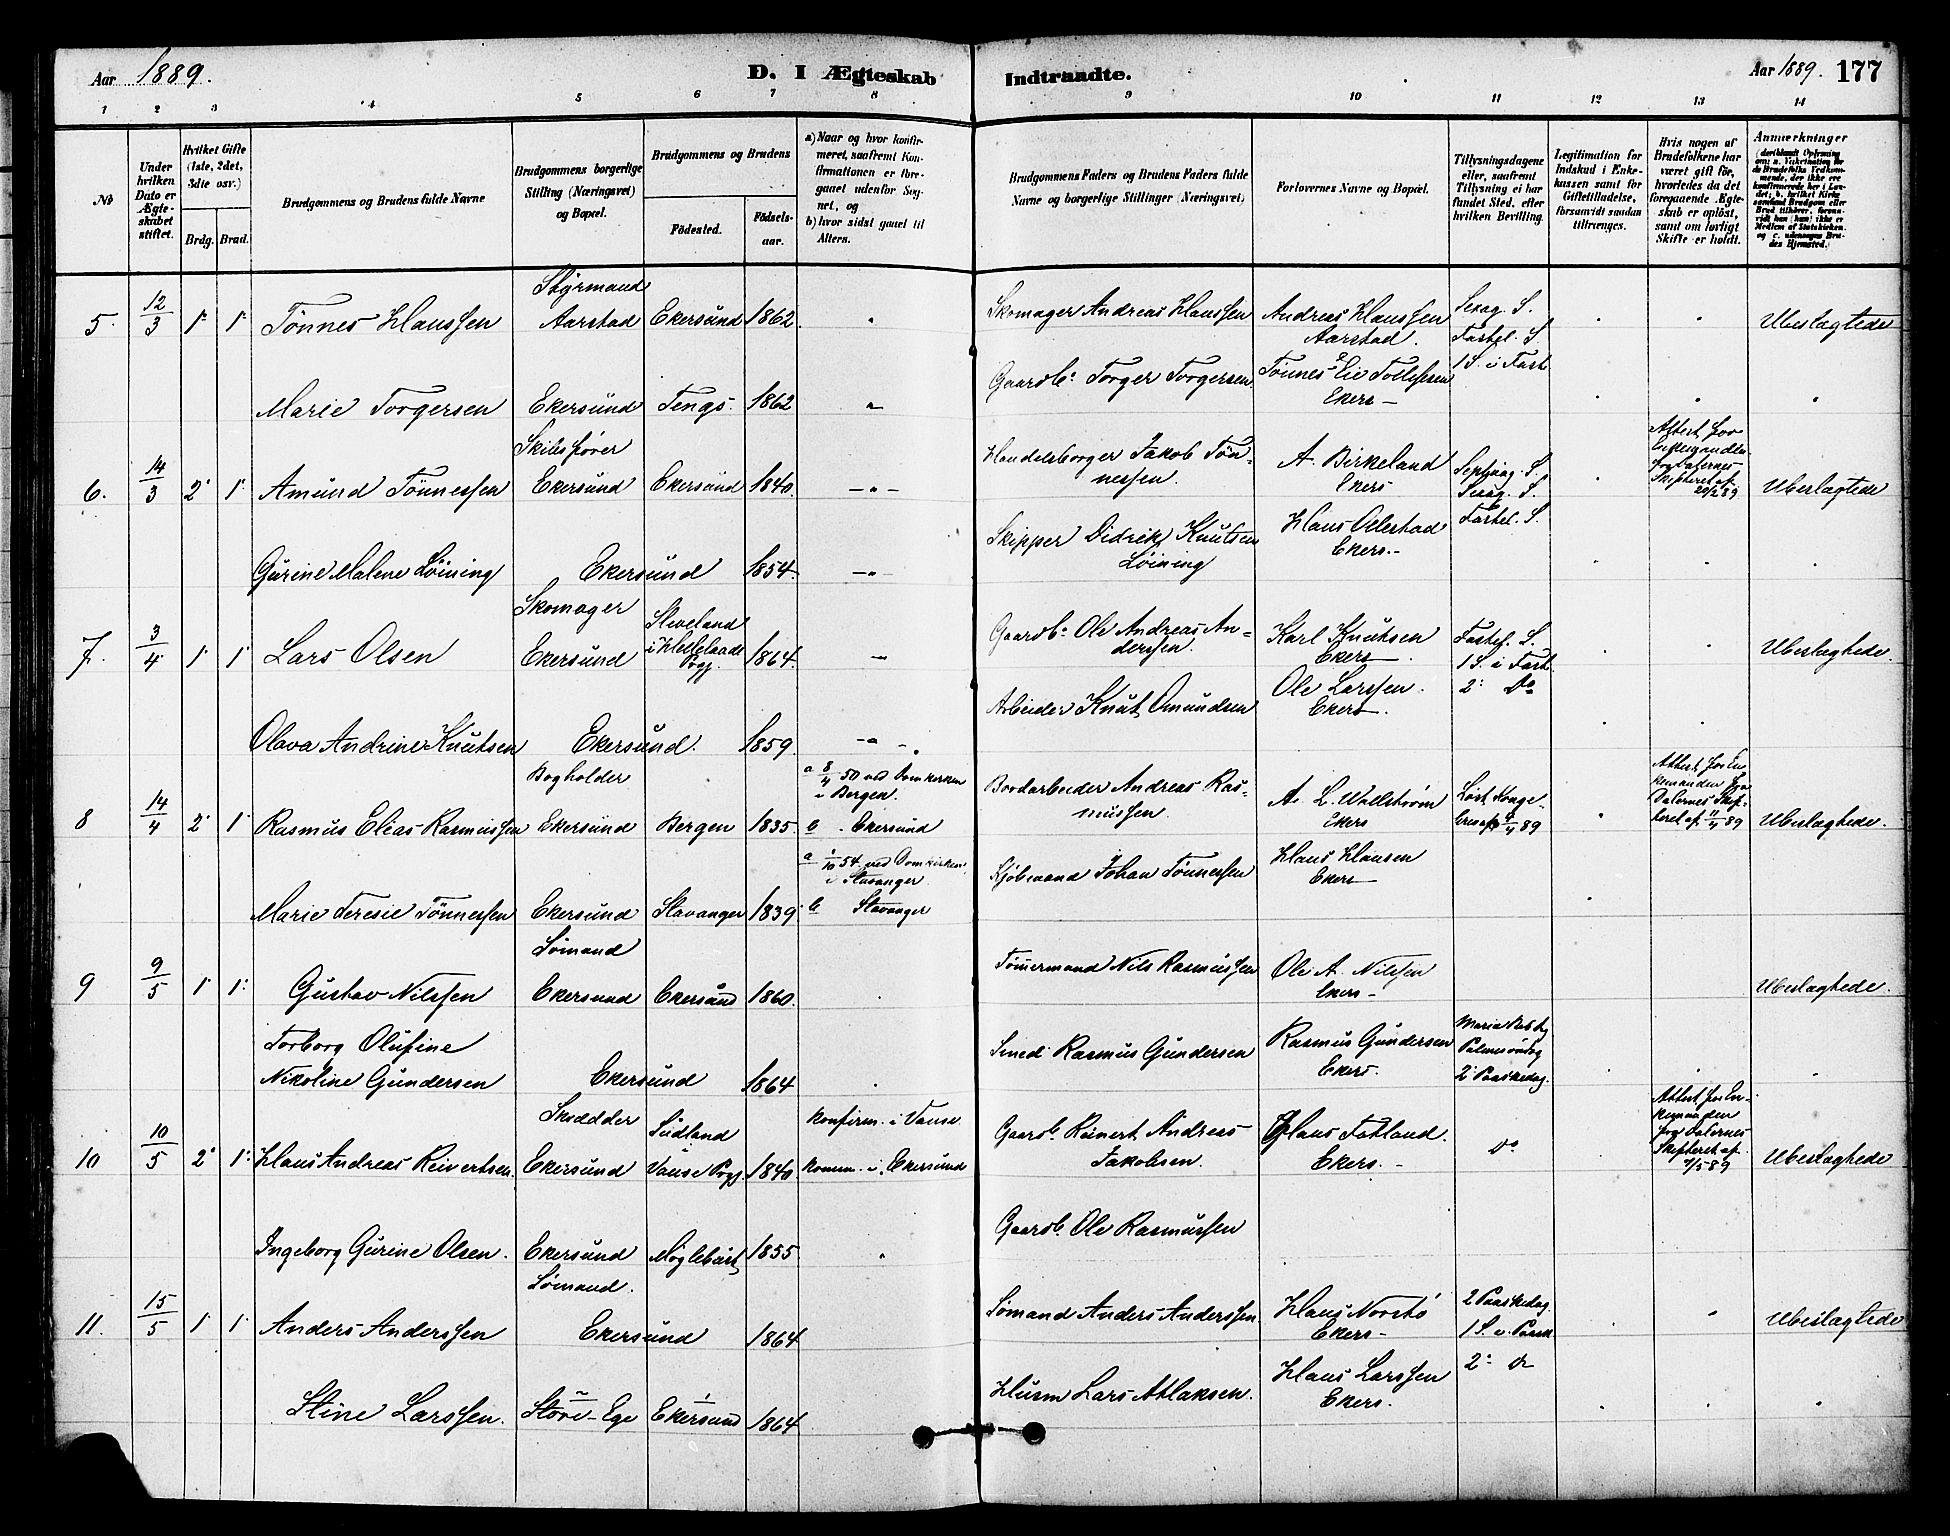 Aar 1889.
D. I Ægteskab Indtraadte.
Aar 1889. 177
1 2 3 4 5 6 7 8 9 10 11 12 13 14
No
Under hvilken Dato er Ægteskabet stiftet.
Hvilket Gifte (1ste, 2det, 3die osv.)
Brdg. Brud.
Brudgommens og Brudens fulde Navne
Brudgommens borgerlige Stilling (Næringsvei) og Bopæl.
Brudgommens og Brudens
Fødested.
Fødselsaar.
a) Naar og hvor konfirmeret, saafremt Konfirmationen er foregaaet udenfor Sognet, og
b) hvor sidst gaaet til Alters.
Brudgommens Faders og Brudens Faders fulde Navne og borgerlige Stillinger (Næringsvei)
Forlovernes Navne og Bopæl.
Tillysningsdagene eller, saafremt Tillysning ei har fundet Sted, efter hvilken Bevilling.
Legitimation for Indskud i Enkekassen samt for Giftetilladelse, forsaavidt saadan tiltrænges.
Hvis nogen af Brudefolkene har været gift før, hvorledes da det foregaaende Ægteskab er opløst, samt om lovligt Skifte er holdt.
Anmærkninger
5. 12/3 1 1 Tønnes Hanssen Styrmand Aarstad Ekersund 1862. " Skomager Andreas Hanssen Andreas Hanssen Aarstad. Sexag. S. Fastel. S. 1 S. i Fast Ubeslægtede
Marie Torgersen Ekersund Tengs. 1862 " Gaardbr. Torger Torgersen Tønnes Eie Tollefsen Ekers
6. 14/3 2 1 Amund Tønnessen Skibsfører Ekersund Ekersund 1840. - " - Handelsborger Jakob Tønnessen. A. Birkeland Ekers Septuag. S. Sexag. S. Fastel. S. Attest for Enkemanden fra Dalernes Skifteret af 20/2 89 Ubeslægtede
Gurine Malene Løining Ekersund 1854. - " - Skipper Didrik Knutsen Løining Hans Ollestad Ekers.
7. 3/4 1 1 Lars Olsen Skomager Ekersund Sleveland i Helleland Pgj. 1864. " Gaardbr. Ole Andreas Anderssen. Karl Knutsen Ekers. Fastel. S. 1 S. i Fast 2 " Do Ubeslægtede.
Olava Andrine Knutsen Ekersund. 1859. - " - Arbeider Knut Omundsen Ole Larssen. Ekers.
8 14/4 2 1 Rasmus Elias Rasmussen Bogholder Ekersund Bergen 1835. a 8/4 50 ved Domkirken i Bergen. b. Ekersund Bordarbeider Andreas Rasmussen. A. L. Wallstrøm Ekers Løst Kongebrev af 9/4 89 Attest for Enkemanden fra Dalernes Skifteret af 11/4 89 Ubeslægtede.
Marie Teresie Tønnessen Ekersund Stavanger 1839 a 1/10 54. ved Domkirken i Stavanger. b Stavanger Kjøbmand Johan Tønnessen Hans Hansen Ekers
9 9/5 1 1 Gustav Nilssen Sømand Ekersund Ekersund 1860. Tømmermand Nils Rasmussen Ole A. Nilssen Ekers Ubeslægtede.
Torborg Olufine Nikoline Gundersen Ekersund 1864 Smed Rasmus Gundersen Rasmus Gundersen Ekers. Maria Beb. dg Palmesøndag 2 Paaskedag.
10 10/5 2 1 Hans Andreas Reivertsen Skrædder Ekersund Sudland Vanse Pgj. 1840. konfirm. i Vanse komm. i Ekersund Gaardbr. Reinert Andreas Jakobsen. Hans Fotland. Ekers. Do Attest for Enkemanden fra Dalernes Skifteret af 7/5 89 Ubeslægtede
Ingeborg Gurine Olsen. Ekersund Møglebust 1855 " Gaardbr. Ole Rasmussen
11. 15/5 1 1 Anders Anderssen Sømand. Ekersund 1864 Sømand Anders Anderssen. Hans Norstø Ekers 2 Paaskedag. 1 S. e. Paask " Ubeslægtede
Stine Larssen. Store-Ege Ekersund 1864 Husm Lars Atlaksen. Hans Larssen Ekers. 2 " Do